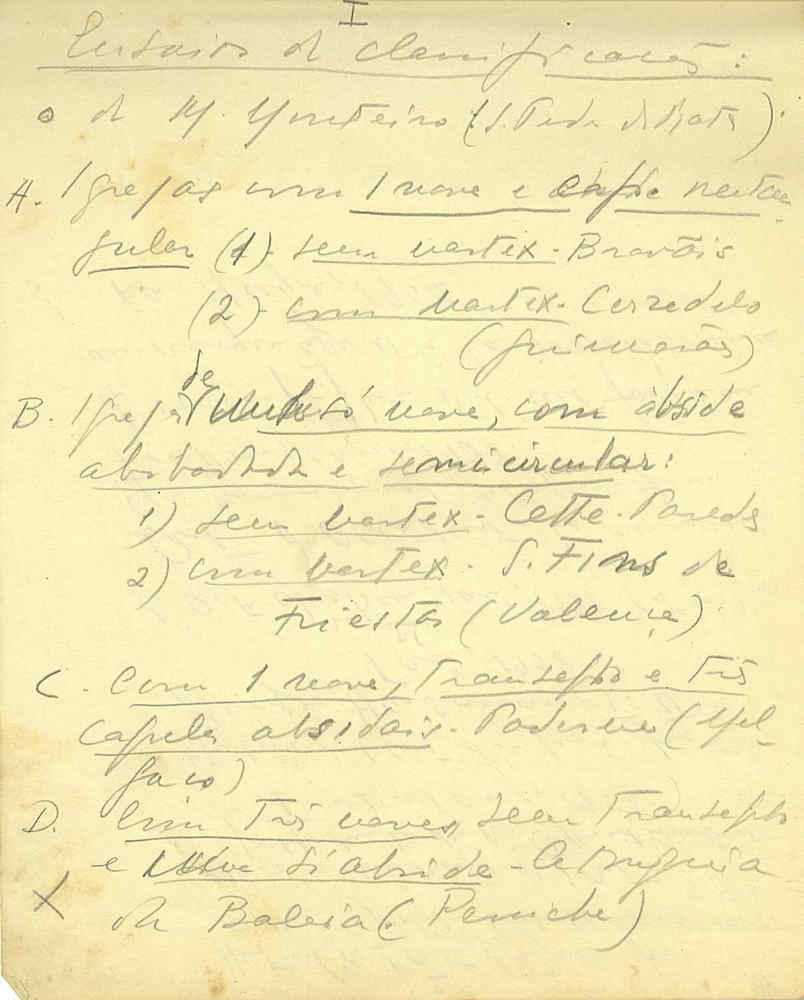 I
Ensaios de classificação:
o de M. Monteiro (S. Pedro de Rates)
A. Igrejas com 1 nave e capela rectan-
gular (1) - sem nartex - Bravães
(2) - com nartex - Cerzedelo
(Guimarães)
B. Igrejas de uma só nave, com ábside
abobadada e semicircular:
1) sem nartex - Cette - Paredes
2) com nartex - S. Fins de
Friestas (Valença)
C. Com 1 nave, transepto e três
capelas absidais - Paderne (Mel-
gaço)
D. Com três naves, sem transepto
e só abside - Atouguia
da Baleia (Peniche)
X